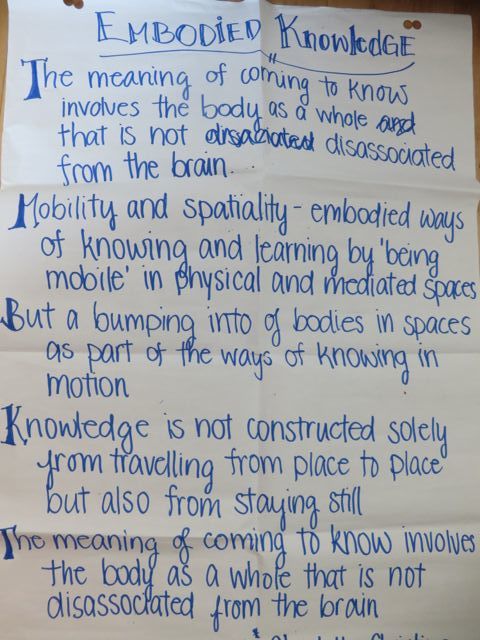 EMBODIED KNOWLEDGE
The meaning of coming to know
involves the body as a whole and
that is not disassociated
from the brain.
Mobility and spatiality - embodied ways
of knowing and learning by 'being
mobile' in physical and mediated spaces
But a bumping into of bodies in spaces
as part of the ways of knowing in
motion
Knowledge is not constructed solely
from travelling from place to place
but also from staying still
The meaning of coming to know involves
the body as a whole that is not
disassociated from the brain